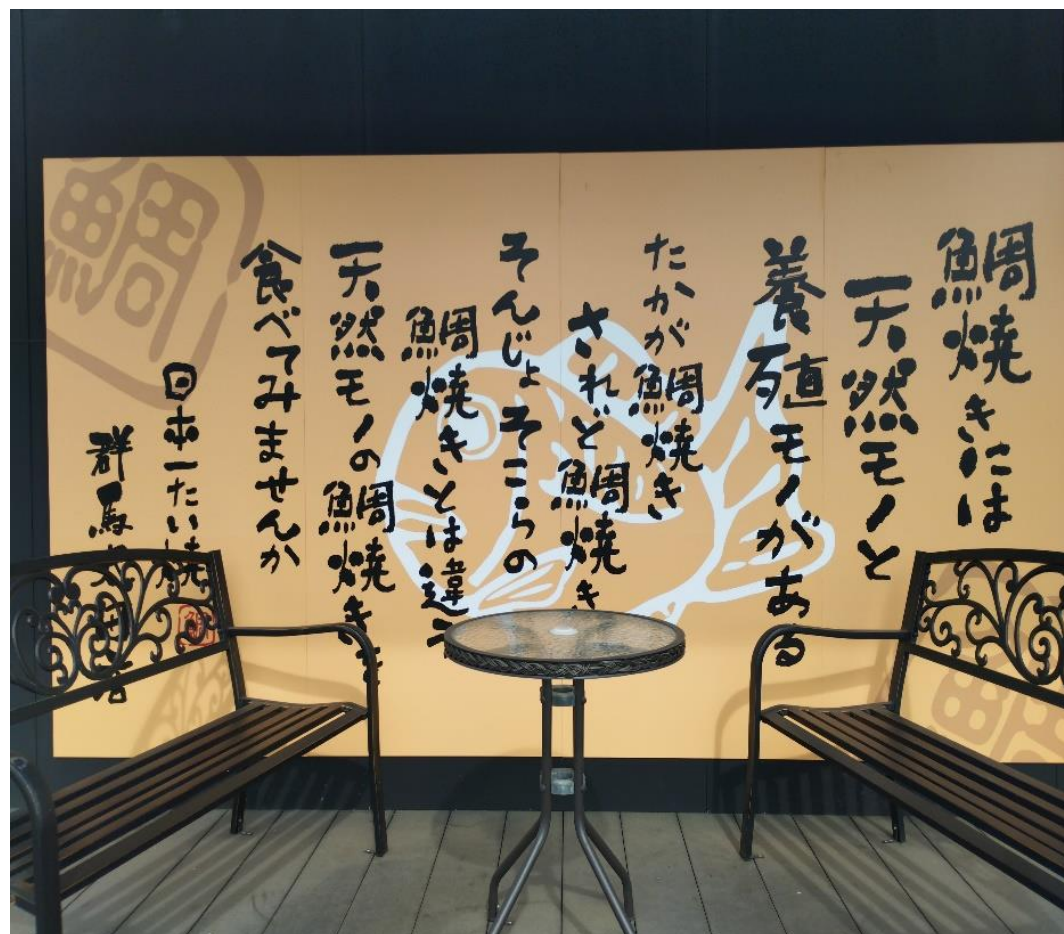 鯛焼きには
天然モノと
養殖モノがある
たかが鯛焼き
されど鯛焼き
そんじょそこらの
鯛焼きとは違う
天然モノの鯛焼き
食べてみませんか
日本一たい焼
群馬
鯛
鯛